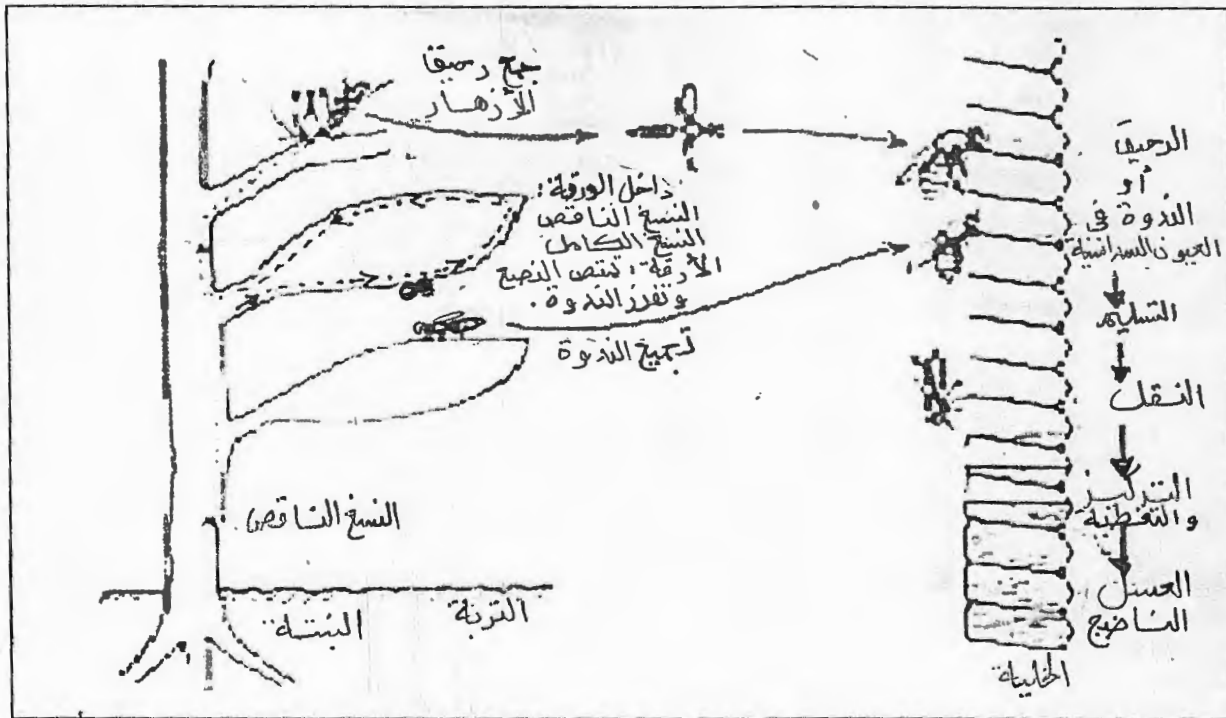 جمع رحيقا
الأزهار
داخل الورقة:
النسغ الناقص
النسغ الكامل
الأرقة: تمتص النسغ
وتفرز الندوة.
تجميع الندوة
النسغ الناقص
التربة
النبتة
الرحيق
أو
الندوة في
العيون السداسية
التسليم
النقل
التركيز
والتغطية
العسل
الناضج
الخلية